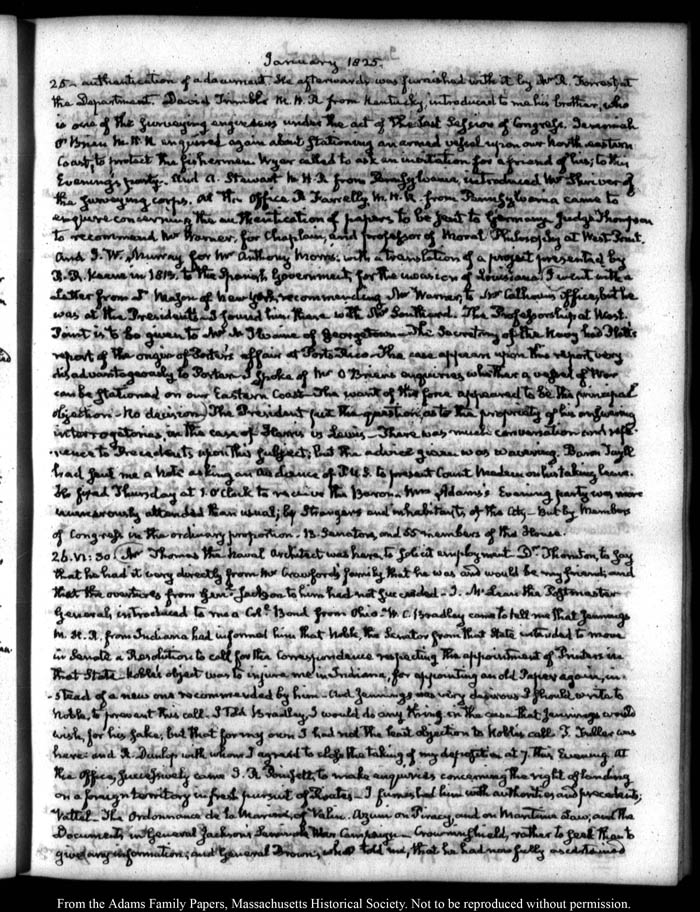 January 1825.
25— authentication of a document. He afterwards was furnished with it by Mr R. Forrest, at
the Department. David Trimble M.H.R from Kentucky, introduced to me his brother, who
is one of the Surveying engineers under the act of the last Session of Congress. Jeremiah
O'Brien M.H.R enquired again about stationing an armed vessel upon our North-eastern
Coast, to protect the fishermen. Wyer called to ask an invitation for a friend of his, to this
Evening's party. And A. Stewart M.H.R from Pennsylvania, introduced Mr Shriver of
the Surveying corps. At the Office P. Farrelly M.H.R. from Pennsylvania came to
enquire concerning the authentication of papers to be sent to Germany. Judge Thompson
to recommend Mr Warner, for Chaplain, and professor of Moral Philosophy at West-Point.
And J. W. Murray for Mr Anthony Morris, with a translation of a project presented by
R. R. Keene in 1813. to the Spanish Government, for the invasion of Louisiana. I went with a
Letter from Dr Mason of New York, recommending Mr Warner, to Mr Calhoun's Office, but he
was at the President's— I found him there with Mr Southard. The Professorship at West-
Point is to be given to Mr McIlvaine of Georgetown— The Secretary of the Navy had Platt's
report of the origin of Porter's affair at Porto-Rico— The case appears upon this report very
disadvantageously to Porter. I spoke of Mr O'Brien's enquiries whether a vessel of War
can be stationed on our Eastern Coast— The want of the force appeared to be the principal
objection— No decision. The President put the question, as to the propriety of his answering
interrogatories, in the case of Harris vs Lewis— There was much conversation and refe-
rence to Precedents upon this subject; but the advice given was wavering. Baron Tuyll
had sent me a Note asking an audience of P.U.S. to present Count Medem on his taking leave.
He fixed Thursday at 1. O'Clock to receive the Baron. Mrs Adams's Evening party was more
numerously attended than usual; by Strangers and inhabitants of the City— But by Members
of Congress in the ordinary proportion. 13. Senators, and 55 members of the House.
26. VI:30. Mr Thomas the Naval Architect was here, to solicit employment. Dr Thornton, to say
that he had it very directly from Mr Crawford's family, that he was and would be my friend; and
that the overtures from Genl Jackson to him had not succeeded— J. McLean the Postmaster
General, introduced to me a Coll Bond from Ohio. W. C. Bradley came to tell me that Jennings
M.H.R. from Indiana had informed him that Noble, the Senator from that State intended to move
in Senate a Resolution to call for the Correspondence respecting the appointment of Printers in
that State— Noble's object was to injure me in Indiana, for appointing an old Paper again, in-
stead of a new one recommended by him— And Jennings was very desirous I should write to
Noble, to prevent this call. I told Bradley, I would do any thing in the case that Jennings would
wish, for his sake; but that for my own I had not the least objection to Noble's call. T. Fuller was
here: and R. Dunlop with whom I agreed to close the taking of my deposition at 7. this Evening. At
the Office, successively came J. R. Poinsett, to make enquiries concerning the right of landing
on a foreign territory in fresh pursuit of Pirates— I furnished him with authorities and precedents;
Vattel— The Ordonnance de la Marine, of Valin. Azuni on Piracy, and on Maritime Law, and the
Documents in General Jackson's Seminole War Campaign— Crowninshield, rather to seek than to
give any information; and General Brown, who told me, that he had now fully ascertained
From the Adams Family Papers, Massachusetts Historical Society. Not to be reproduced without permission.